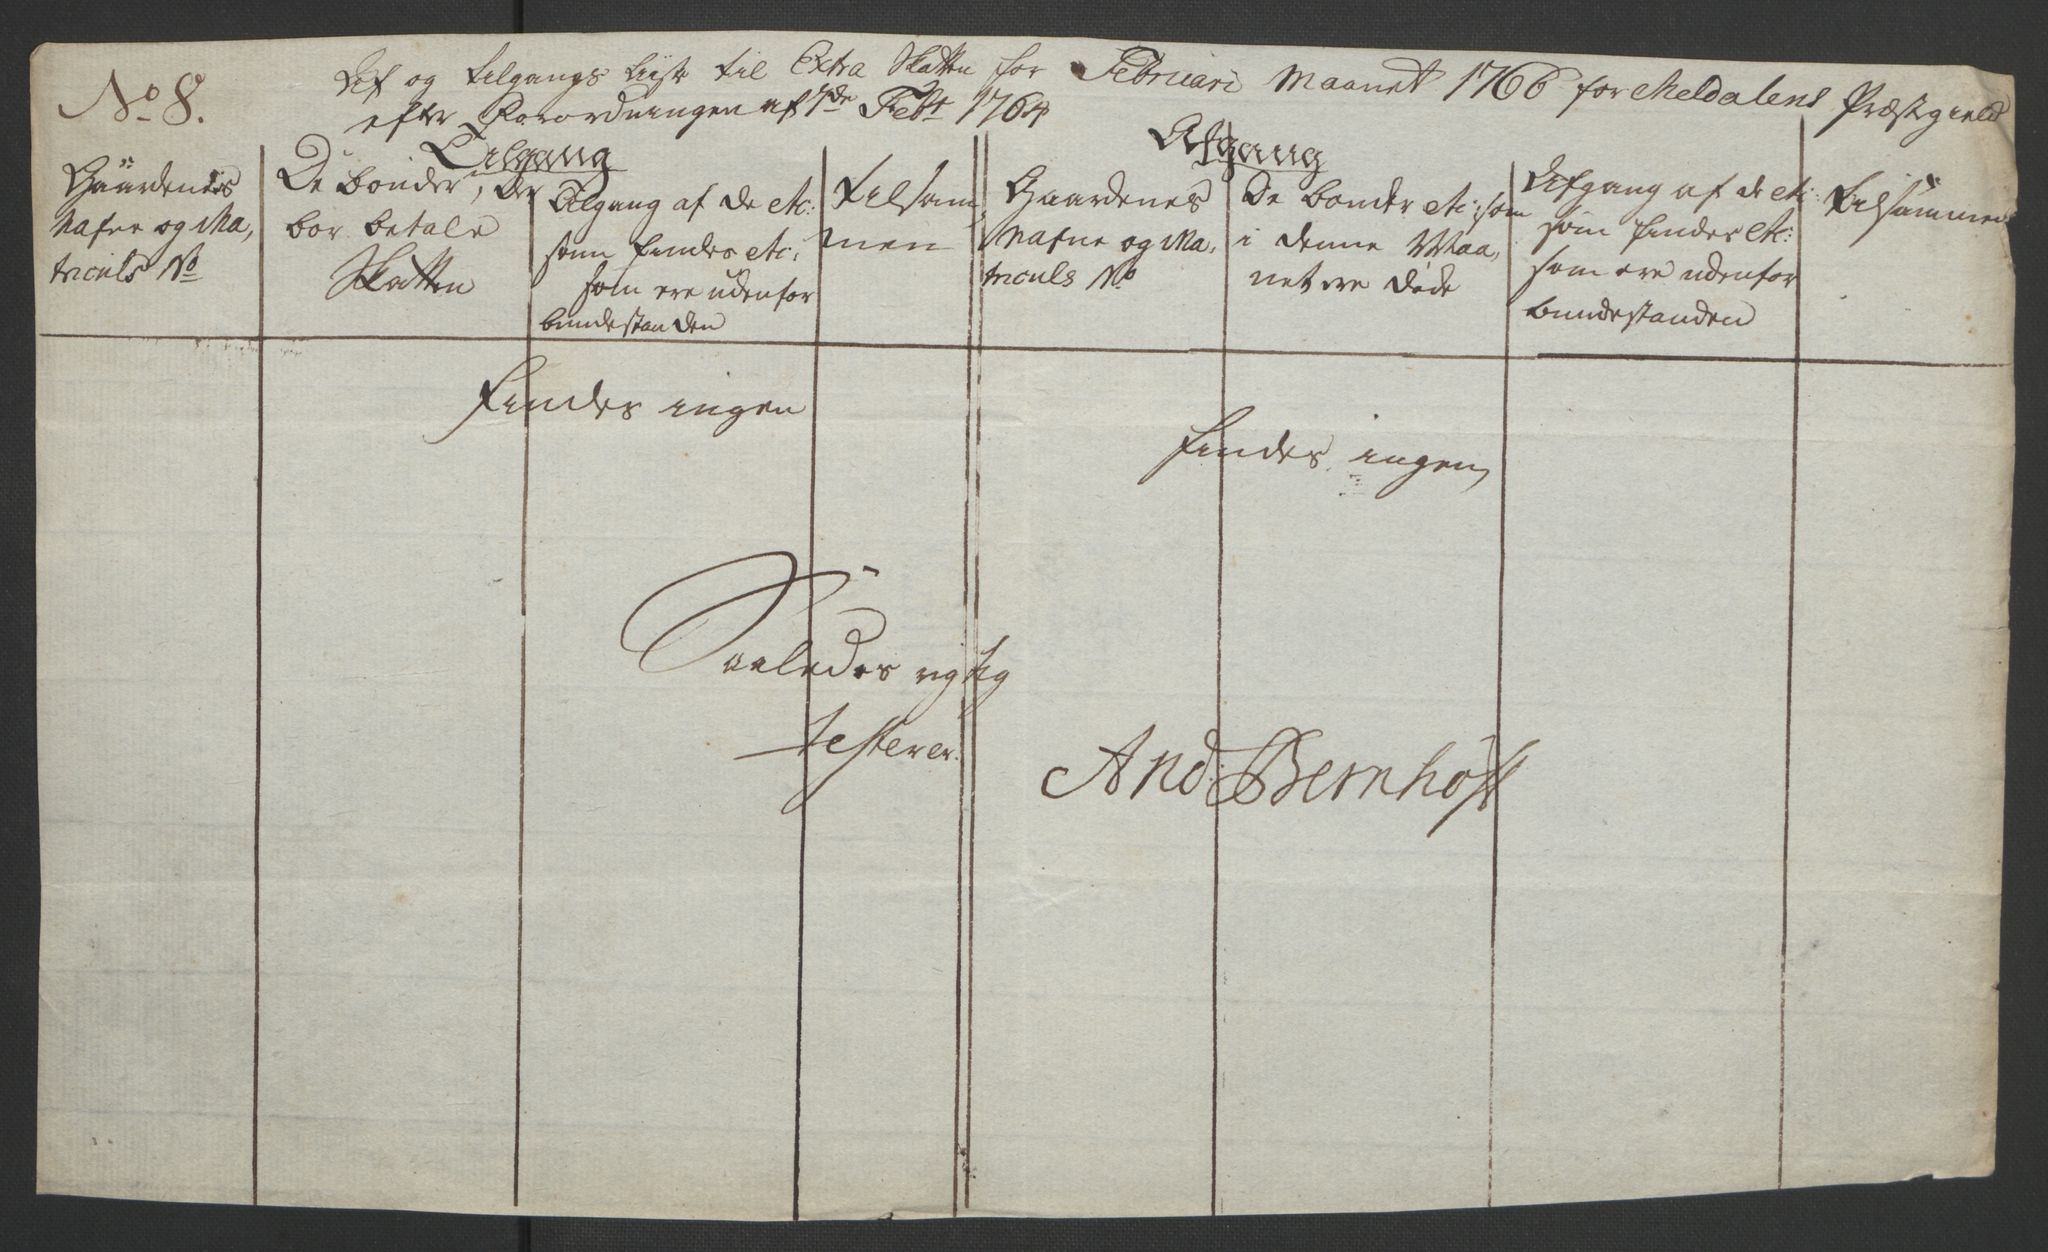 No 8.
Af og tilgangs Liste til Extra Skatten for Februari Maanet 1766 for Meldalens Præstegield
efter Forordningen af 7de Febr 1764
Tilgang
Gaardenes
Nafne og Ma,
triculs No
De bønder, der
bør betale
Skatten
Tilgang af de etc:
som findes etc:
som ere udenfor
bundestanden
Tilsam,
men
Afgang
Gaardenes
Nafne og Ma,
triculs No
De bønder etc: som
i denne Maa,
net ere døde
Afgang af de etc:
som findes etc:
som ere udenfor
bundestanden
Tilsammen
Findes ingen
Findes ingen
Saaledes rigtig
testerer.
And: Bernhoft